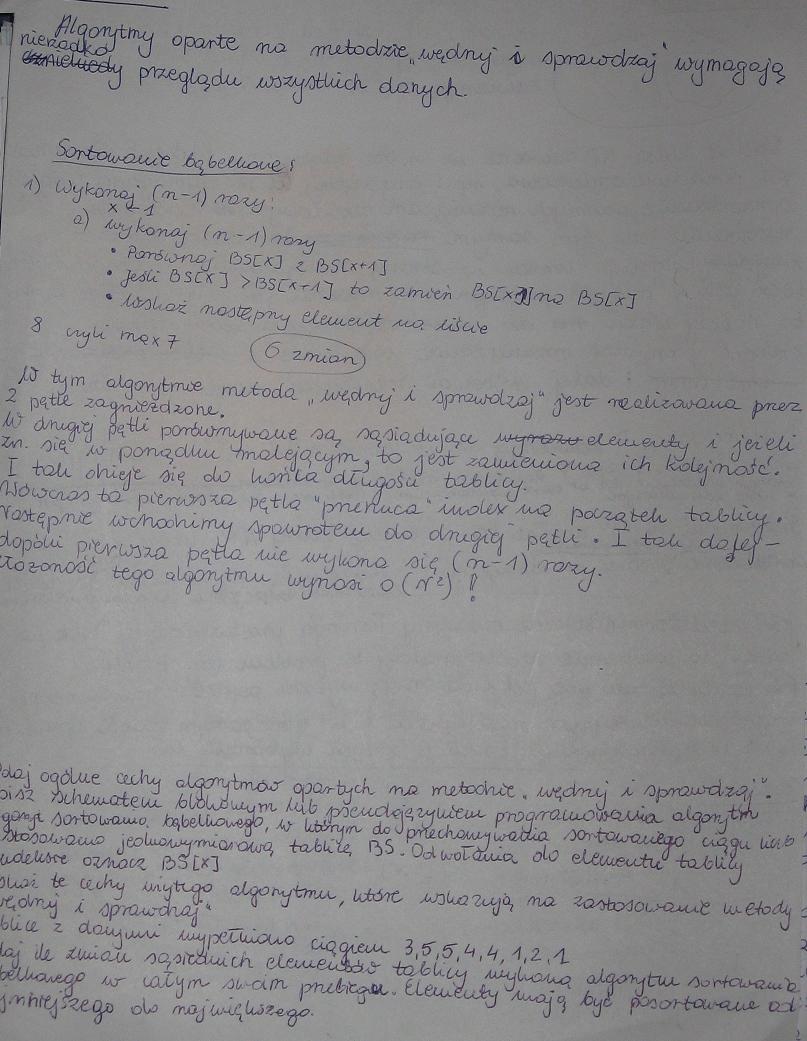 Algorytmy oparte na metodzie „wędruj i sprawdzaj" wymagają
nierzadko
przeglądu wszystkich danych.
Sortowanie bąbelkowe:
1) Wykonaj (n-1) razy:
x ← 1
a) wykonaj (n-1) razy
• Porównaj BS[x] z BS[x+1]
• Jeśli BS[x] > BS[x+1] to zamień BS[x] na BS[x]
• Wskaż następny element na liście
8 czyli max 7
6 zmian
W tym algorytmie metoda „wędruj i sprawdzaj" jest realizowana przez
2 pętle zagnieżdzone.
W drugiej pętli porównywane są sąsiadujące wyrazy elementy i jeżeli
zn. się w porządku malejącym, to jest zamieniona ich kolejność.
I tak dzieje się do końca długości tablicy.
Wówczas ta pierwsza pętla "przerzuca" index na początek tablicy.
Następnie wchodzimy spowrotem do drugiej pętli. I tak dalej –
dopóki pierwsza pętla nie wykona się (n-1) razy.
złożoność tego algorytmu wynosi O(N²) !
odaj ogólne cechy algorytmów opartych na metodzie „wędruj i sprawdzaj".
pisz schematem blokowym lub pseudojęzykiem programowania algorytm
sortowania bąbelkowego, w którym do przechowywania sortowanego ciągu liczb
stosowano jednowymiarową tablicę BS. Odwołania do elementu tablicy
indeksie oznacz BS[x]
skaż te cechy użytego algorytmu, które wskazują na zastosowanie metody
wędruj i sprawdzaj"
blicę z danymi wypełniono ciągiem 3,5,5,4,4,1,2,1
daj ile zmian sąsiednich elementów tablicy wykona algorytm sortowania
belkowego w całym swoim przebiegu. Elementy mają być posortowane od
jmniejszego do największego.